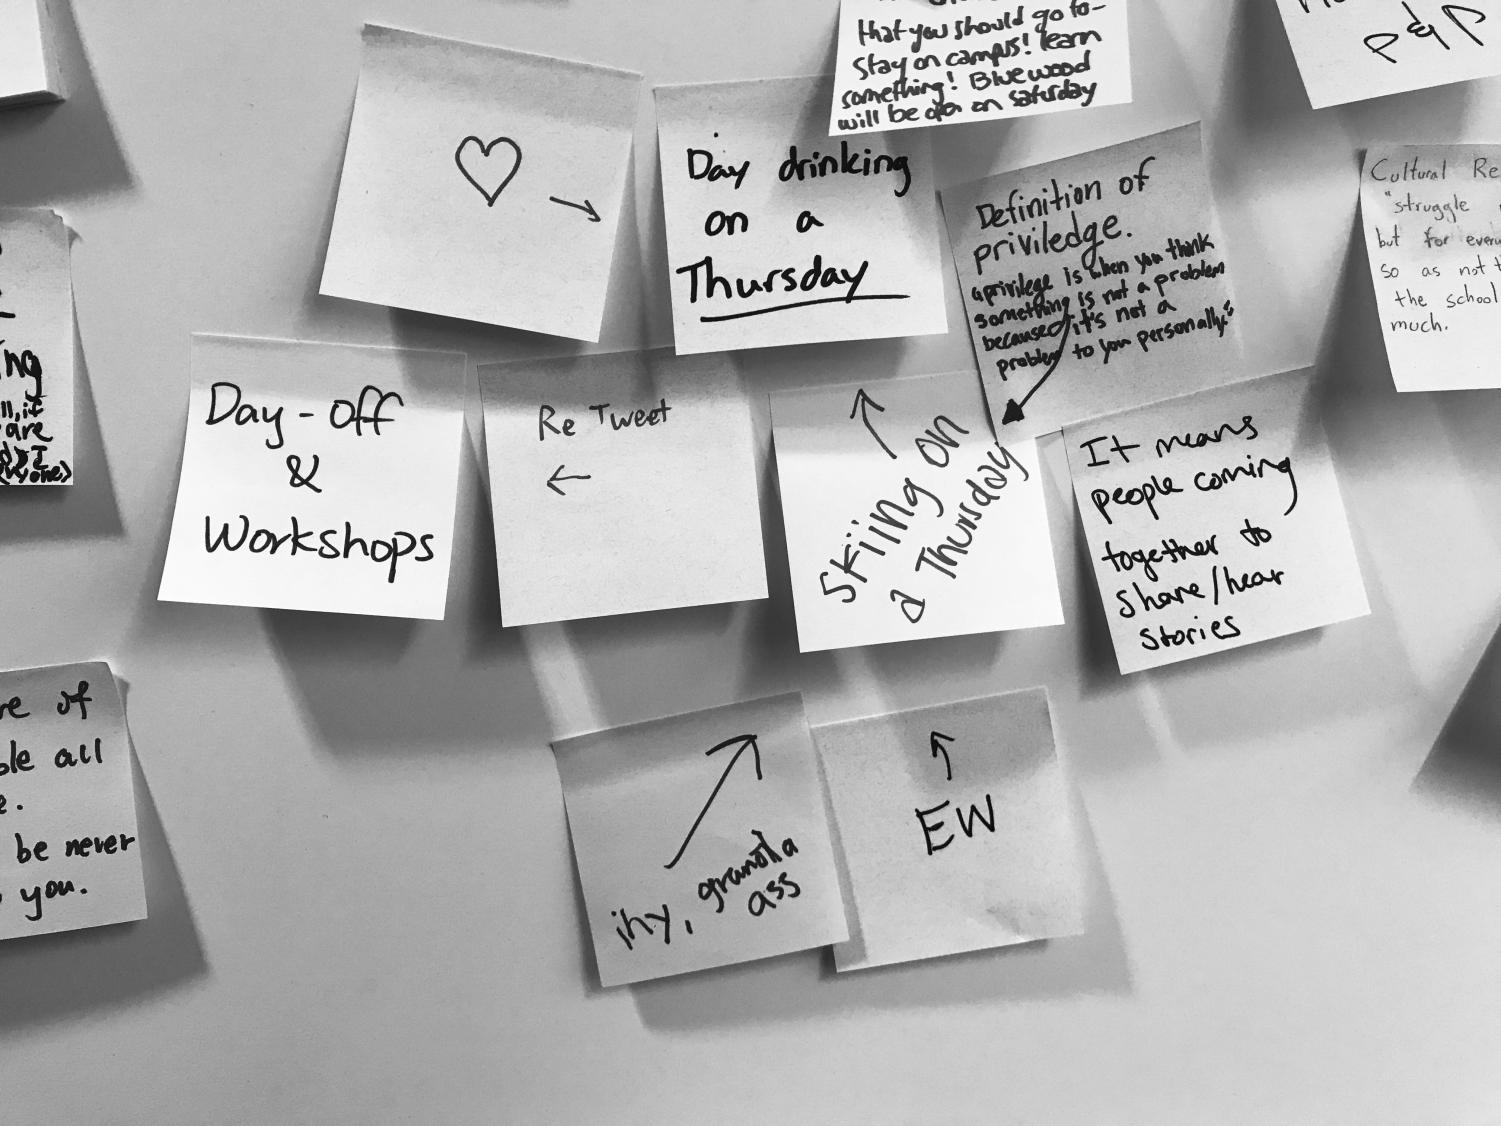 that you should go to-
Stay on campus! learn
something! Bluewood
will be open on Saturday
P&P
Day drinking
on a
Thursday
Definition of
priviledge.
a privilege is when you think
something is not a problem
because it's not a
problem to you personally."
Cultural Re
"struggle
but for every
so as not t
the school
much.
ng
ll, if
are
Day-off
&
Workshops
Re Tweet
Skiing on
a Thursday
It means
people coming
together to
share/hear
stories
re of
ble all
e.
be never
you.
ihy, granola
ass
EW